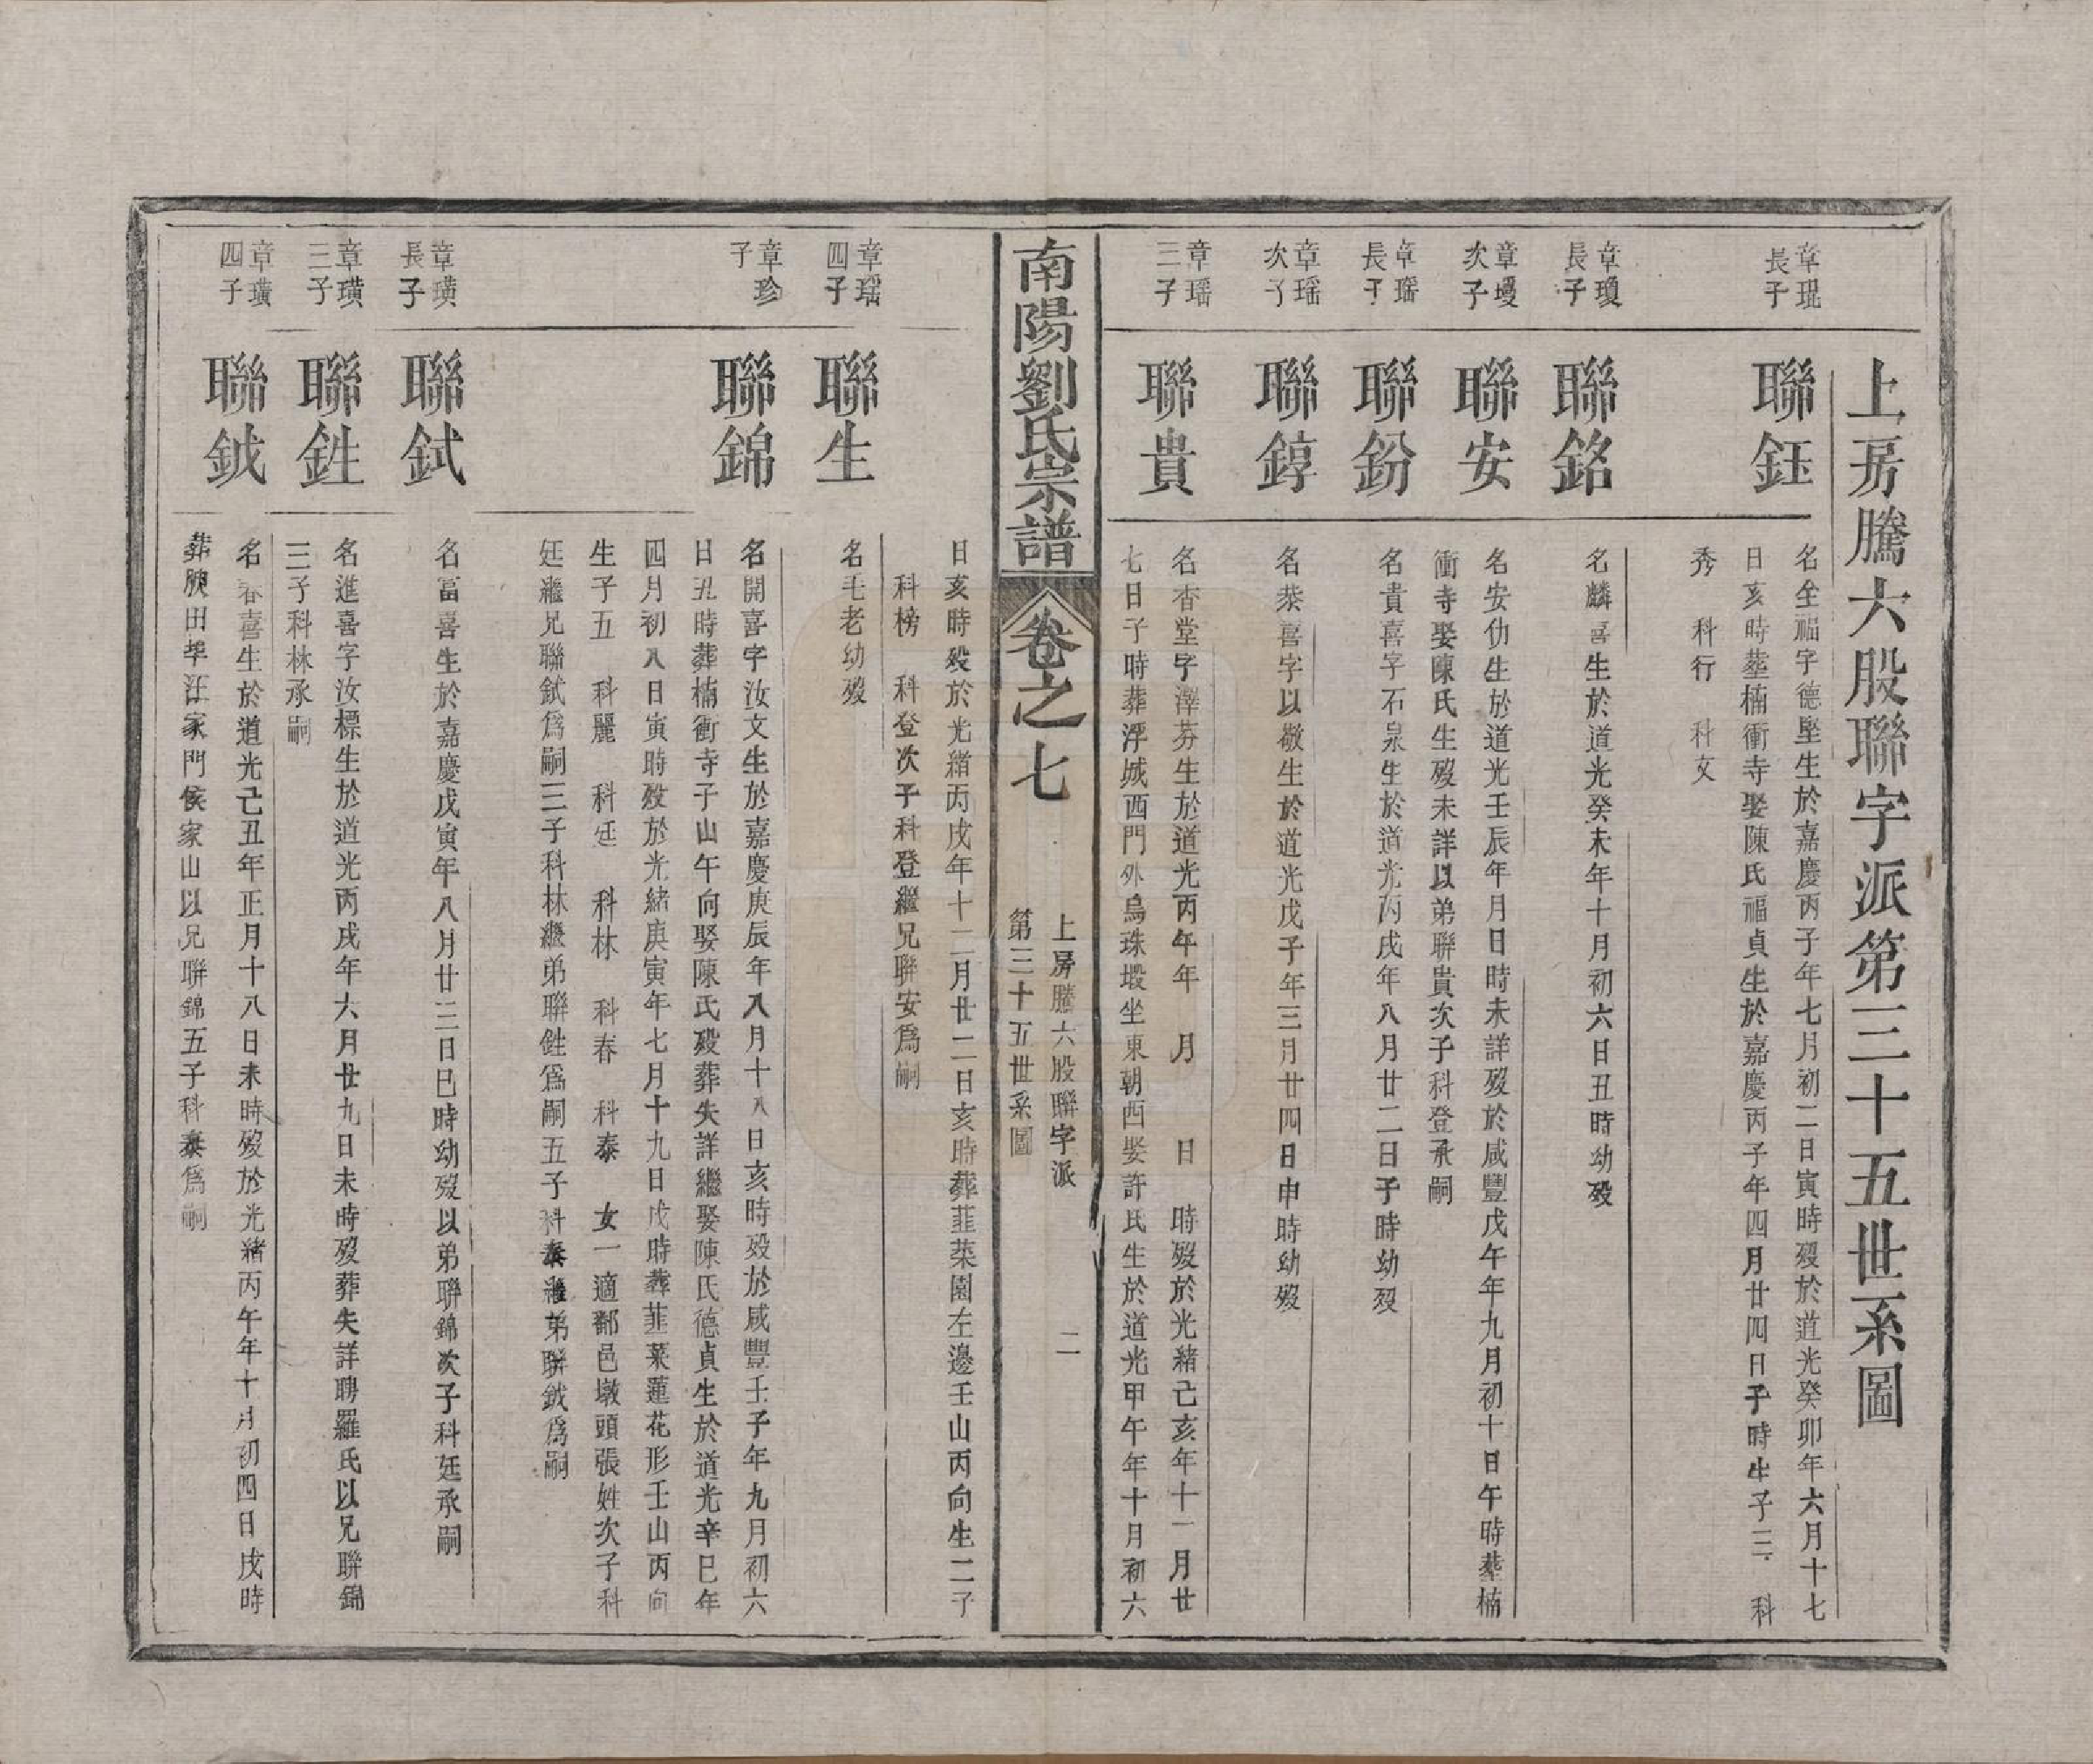 上房騰六股聯字派第三十五世系圖
章琨長子
聯鈺
名全福字德堅生於嘉慶丙子年七月初二日寅時歿於道光癸卯年六月十七
日亥時塟楠衝寺娶陳氏福貞生於嘉慶丙子年四月廿四日子時生子三 科
秀 科行 科文
章瓊長子
聯銘
名麟喜生於道光癸未年十月初六日丑時幼歿
章璦次子
聯安
名安仂生於道光壬辰年月日時未詳歿於咸豐戊午年九月初十日午時塟楠
衝寺娶陳氏生歿未詳以弟聯貴次子科登承嗣
章瑤長子
聯鈖
名貴喜字石泉生於道光丙戌年八月廿二日子時幼歿
章瑤次子
聯錞
名恭喜字以敬生於道光戊子年三月廿四日申時幼歿
章瑤三子
聯貴
名杏堂字澤芬生於道光丙午年 月 日 時歿於光緒己亥年十一月廿
七日子時葬浮城西門外烏珠塅坐東朝西娶許氏生於道光甲午年十月初六
南陽劉氏宗譜 卷之七
上房騰六股聯字派
第三十五世系圖
二
日亥時歿於光緒丙戌年十二月廿二日亥時葬韮菜園左邊壬山丙向生二子
科榜 科登次子科登繼兄聯安為嗣
章瑤四子
聯生
名毛老幼歿
章珍子
聯錦
名開喜字汝文生於嘉慶庚辰年八月十八日亥時歿於咸豐壬子年九月初六
日丑時葬楠衝寺子山午向娶陳氏歿葬失詳繼娶陳氏德貞生於道光辛巳年
四月初八日寅時歿於光緒庚寅年七月十九日戌時葬韮菜蓮花形壬山丙向
生子五 科麗 科廷 科林 科春 科泰 女一適鄱邑墩頭張姓次子科
廷繼兄聯鉽為嗣三子科林繼弟聯鉎為嗣五子科泰繼弟聯鉞為嗣
章璜長子
聯鉽
名富喜生於嘉慶戊寅年八月廿三日巳時幼歿以弟聯錦次子科廷承嗣
章璜三子
聯鉎
名進喜字汝標生於道光丙戌年六月廿九日未時歿葬失詳聘羅氏以兄聯錦
三子科林承嗣
章璜四子
聯鉞
名春喜生於道光己丑年正月十八日未時歿於光緒丙午年十月初四日戌時
葬腴田埠汪家門侯家山以兄聯錦五子科泰為嗣